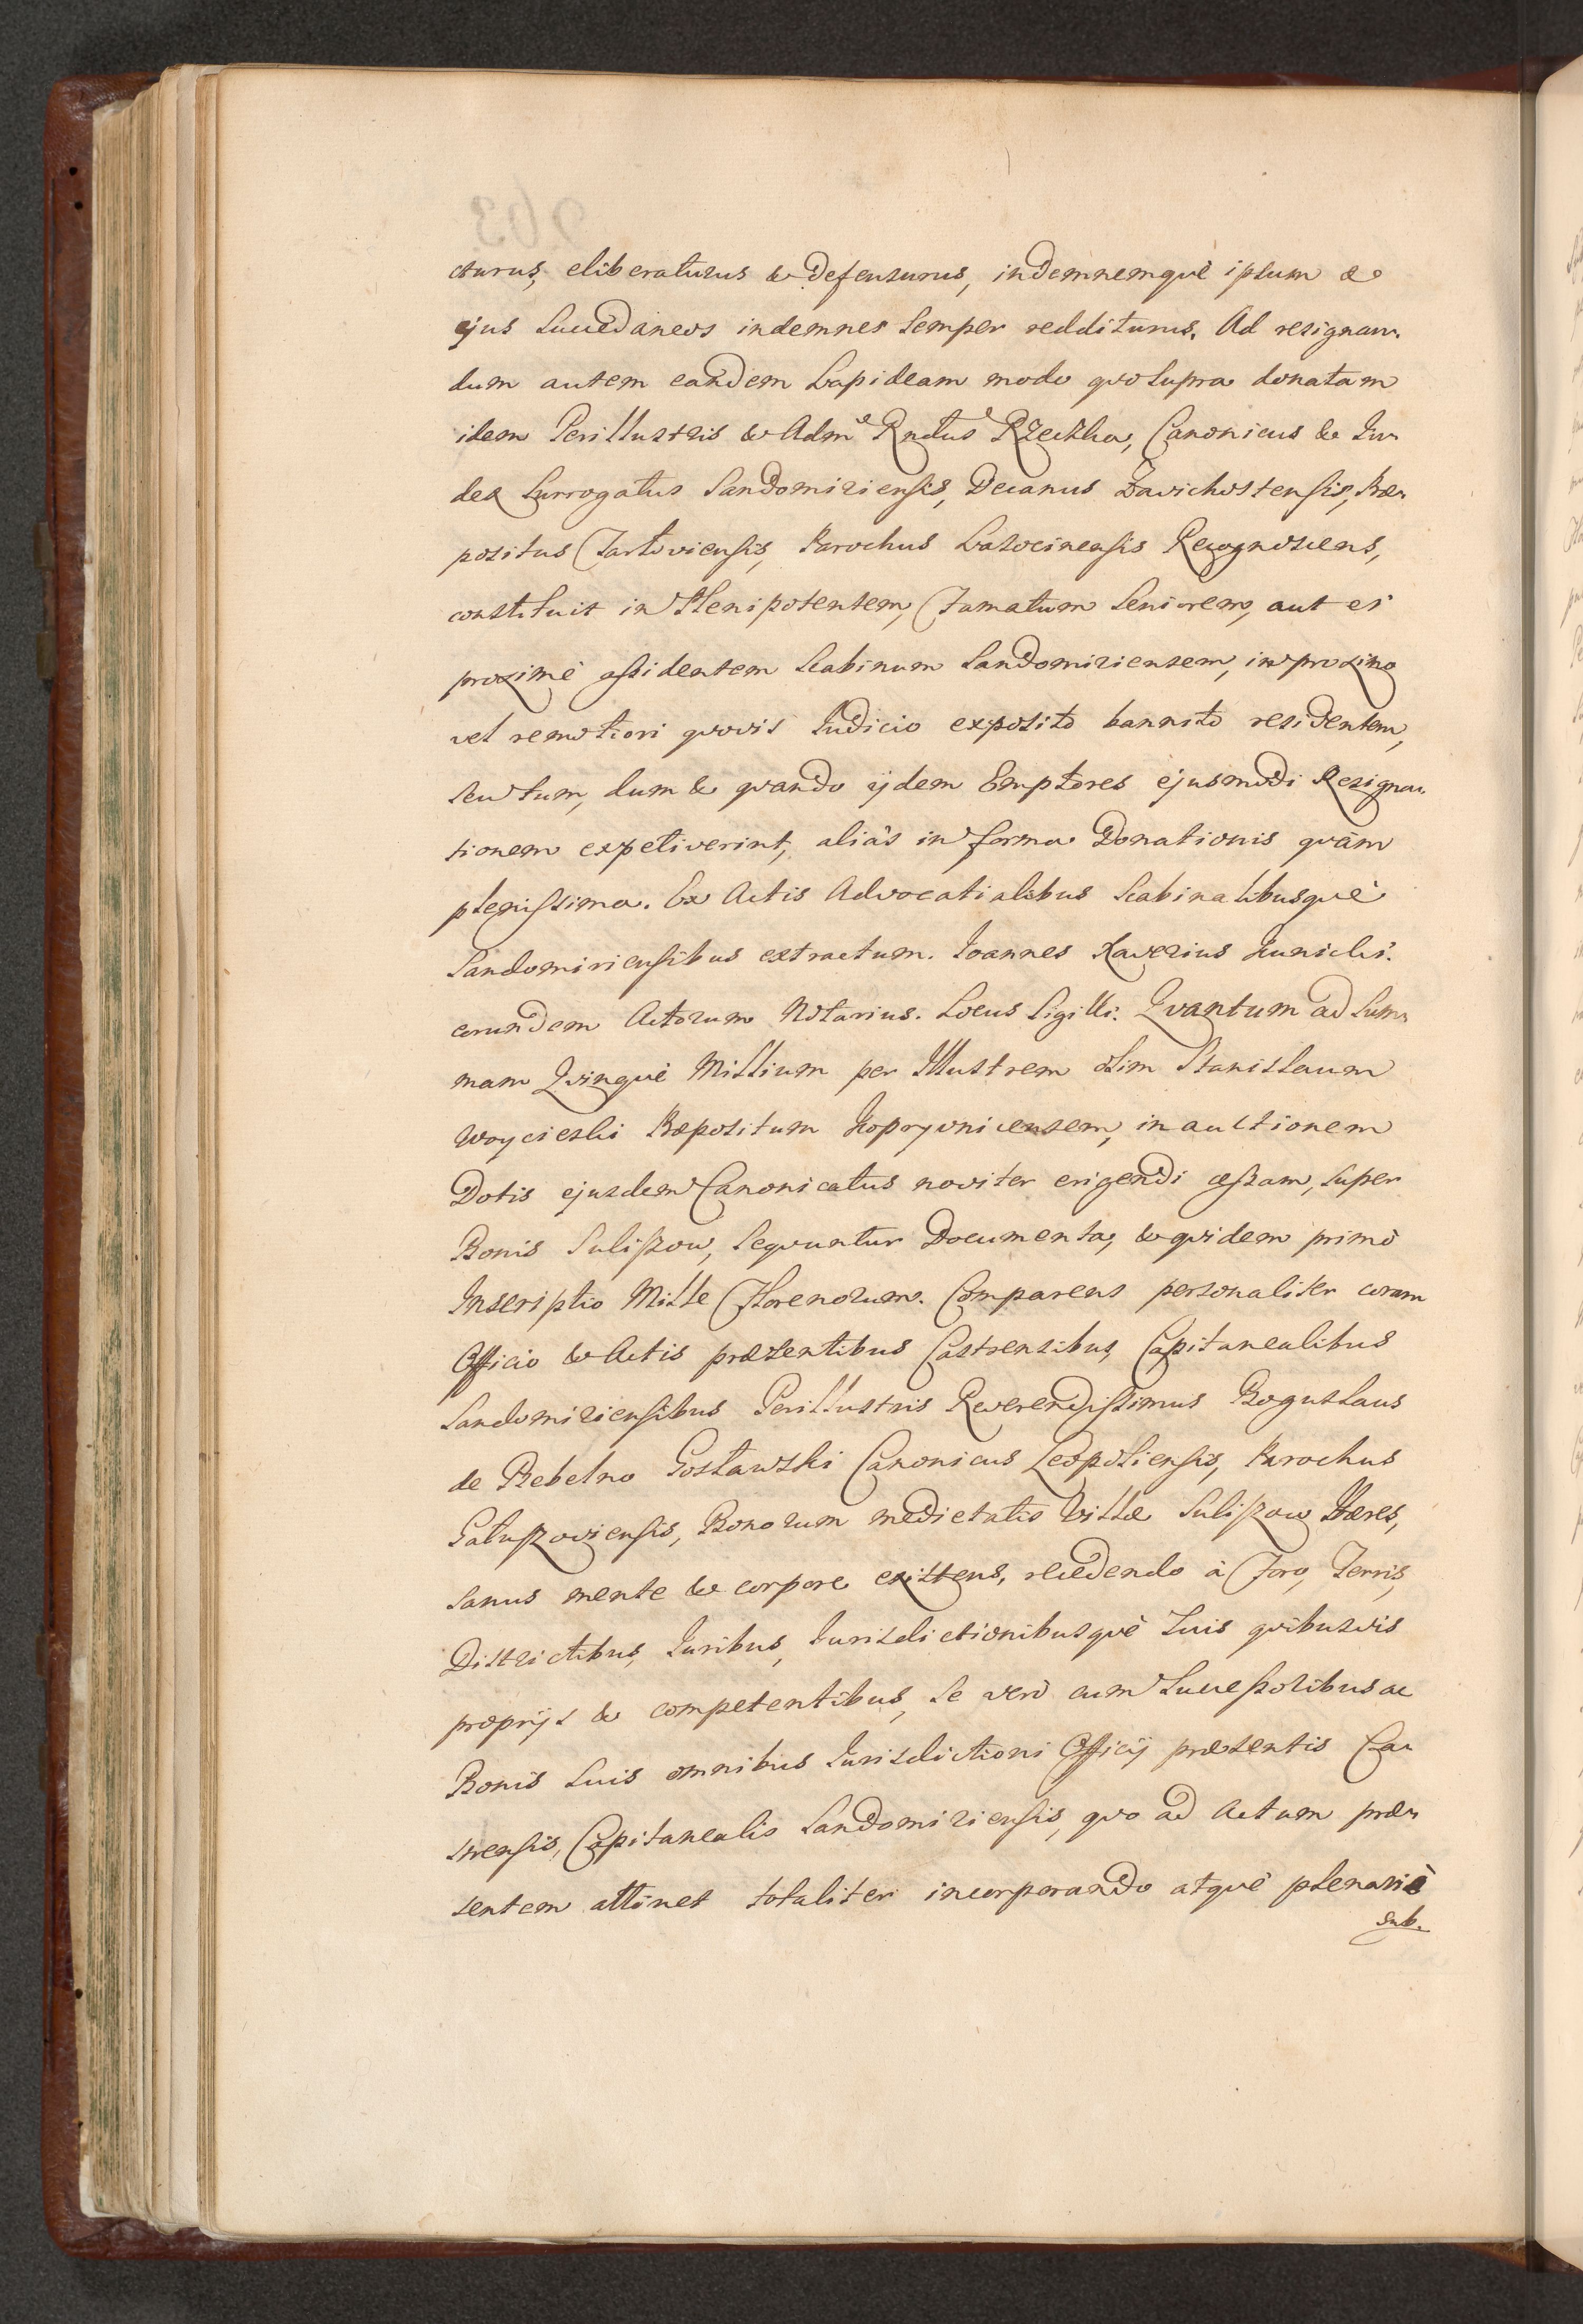 cturus, eliberaturus & Defensurus, indemnemqvè ipsum &
ejus Succedaneos indemnes Semper redditurus. Ad resignan-
dum autem eandem Lapideam modo qvo Supra donatam
idem Perillustris & Adm̃ Rñdus Rzeczka, Canonicus & Ju-
dex Surrogatus Sandomiriensis, Decanus Zavichostensis, Præ-
positus Tarloviensis, Parochus Lasocinensis Recognoscens,
constituit in Plenipotentem, Famatum Seniorem, aut ei
proximè assidentem Scabinum Sandomiriensem, in proximo
vel remotiori qvovis Judicio exposito bannito residentem,
seu tum, dum & qvando ijdem Emptores ejusmodi Resigna-
tionem expetiverint, aliàs in forma Donationis qvàm
plenissima. Ex Actis Advocatialibus Scabinalibusqvè
Sandomiriensibus extractum. Joannes Xaverius Kunicki.
eorundem Actorum Notarius. Locus Sigilli. Qvantum ad Sum-
mam Qvinqvè Millium per Illustrem olim Stanislaum
Woycieski Præpositum Koprzyvnicensem, in auctionem
Dotis ejusdem Canonicatus noviter erigendi cessam, super
Bonis Suliszow, Seqvuntur Documenta, & qvidem primò
Inscriptio Mille Florenorum. Comparens personaliter coram
Officio & Actis præsentibus Castrensibus, Capitanealibus
Sandomiriensibus Perillustris Reverendissimus Boguslaus
de Bebelno Gosławski Canonicus Leopoliensis, Parochus
Gałuszoviensis, Bonorum medietatis Villæ Suliszow Hæres,
Sanus mente & corpore existens, recedendo à Foro, Terris,
Districtibus, Juribus, Jurisdictionibusqvè Suis qvibusvis
proprijs & competentibus, Se verò cum Successoribus ac
Bonis Suis omnibus Jurisdictioni Officij præsentis Ca-
strensis, Capitanealis Sandomiriensis, qvo ad Actum præ-
sentem attinet totaliter incorporando atqvè plenariè
sub-